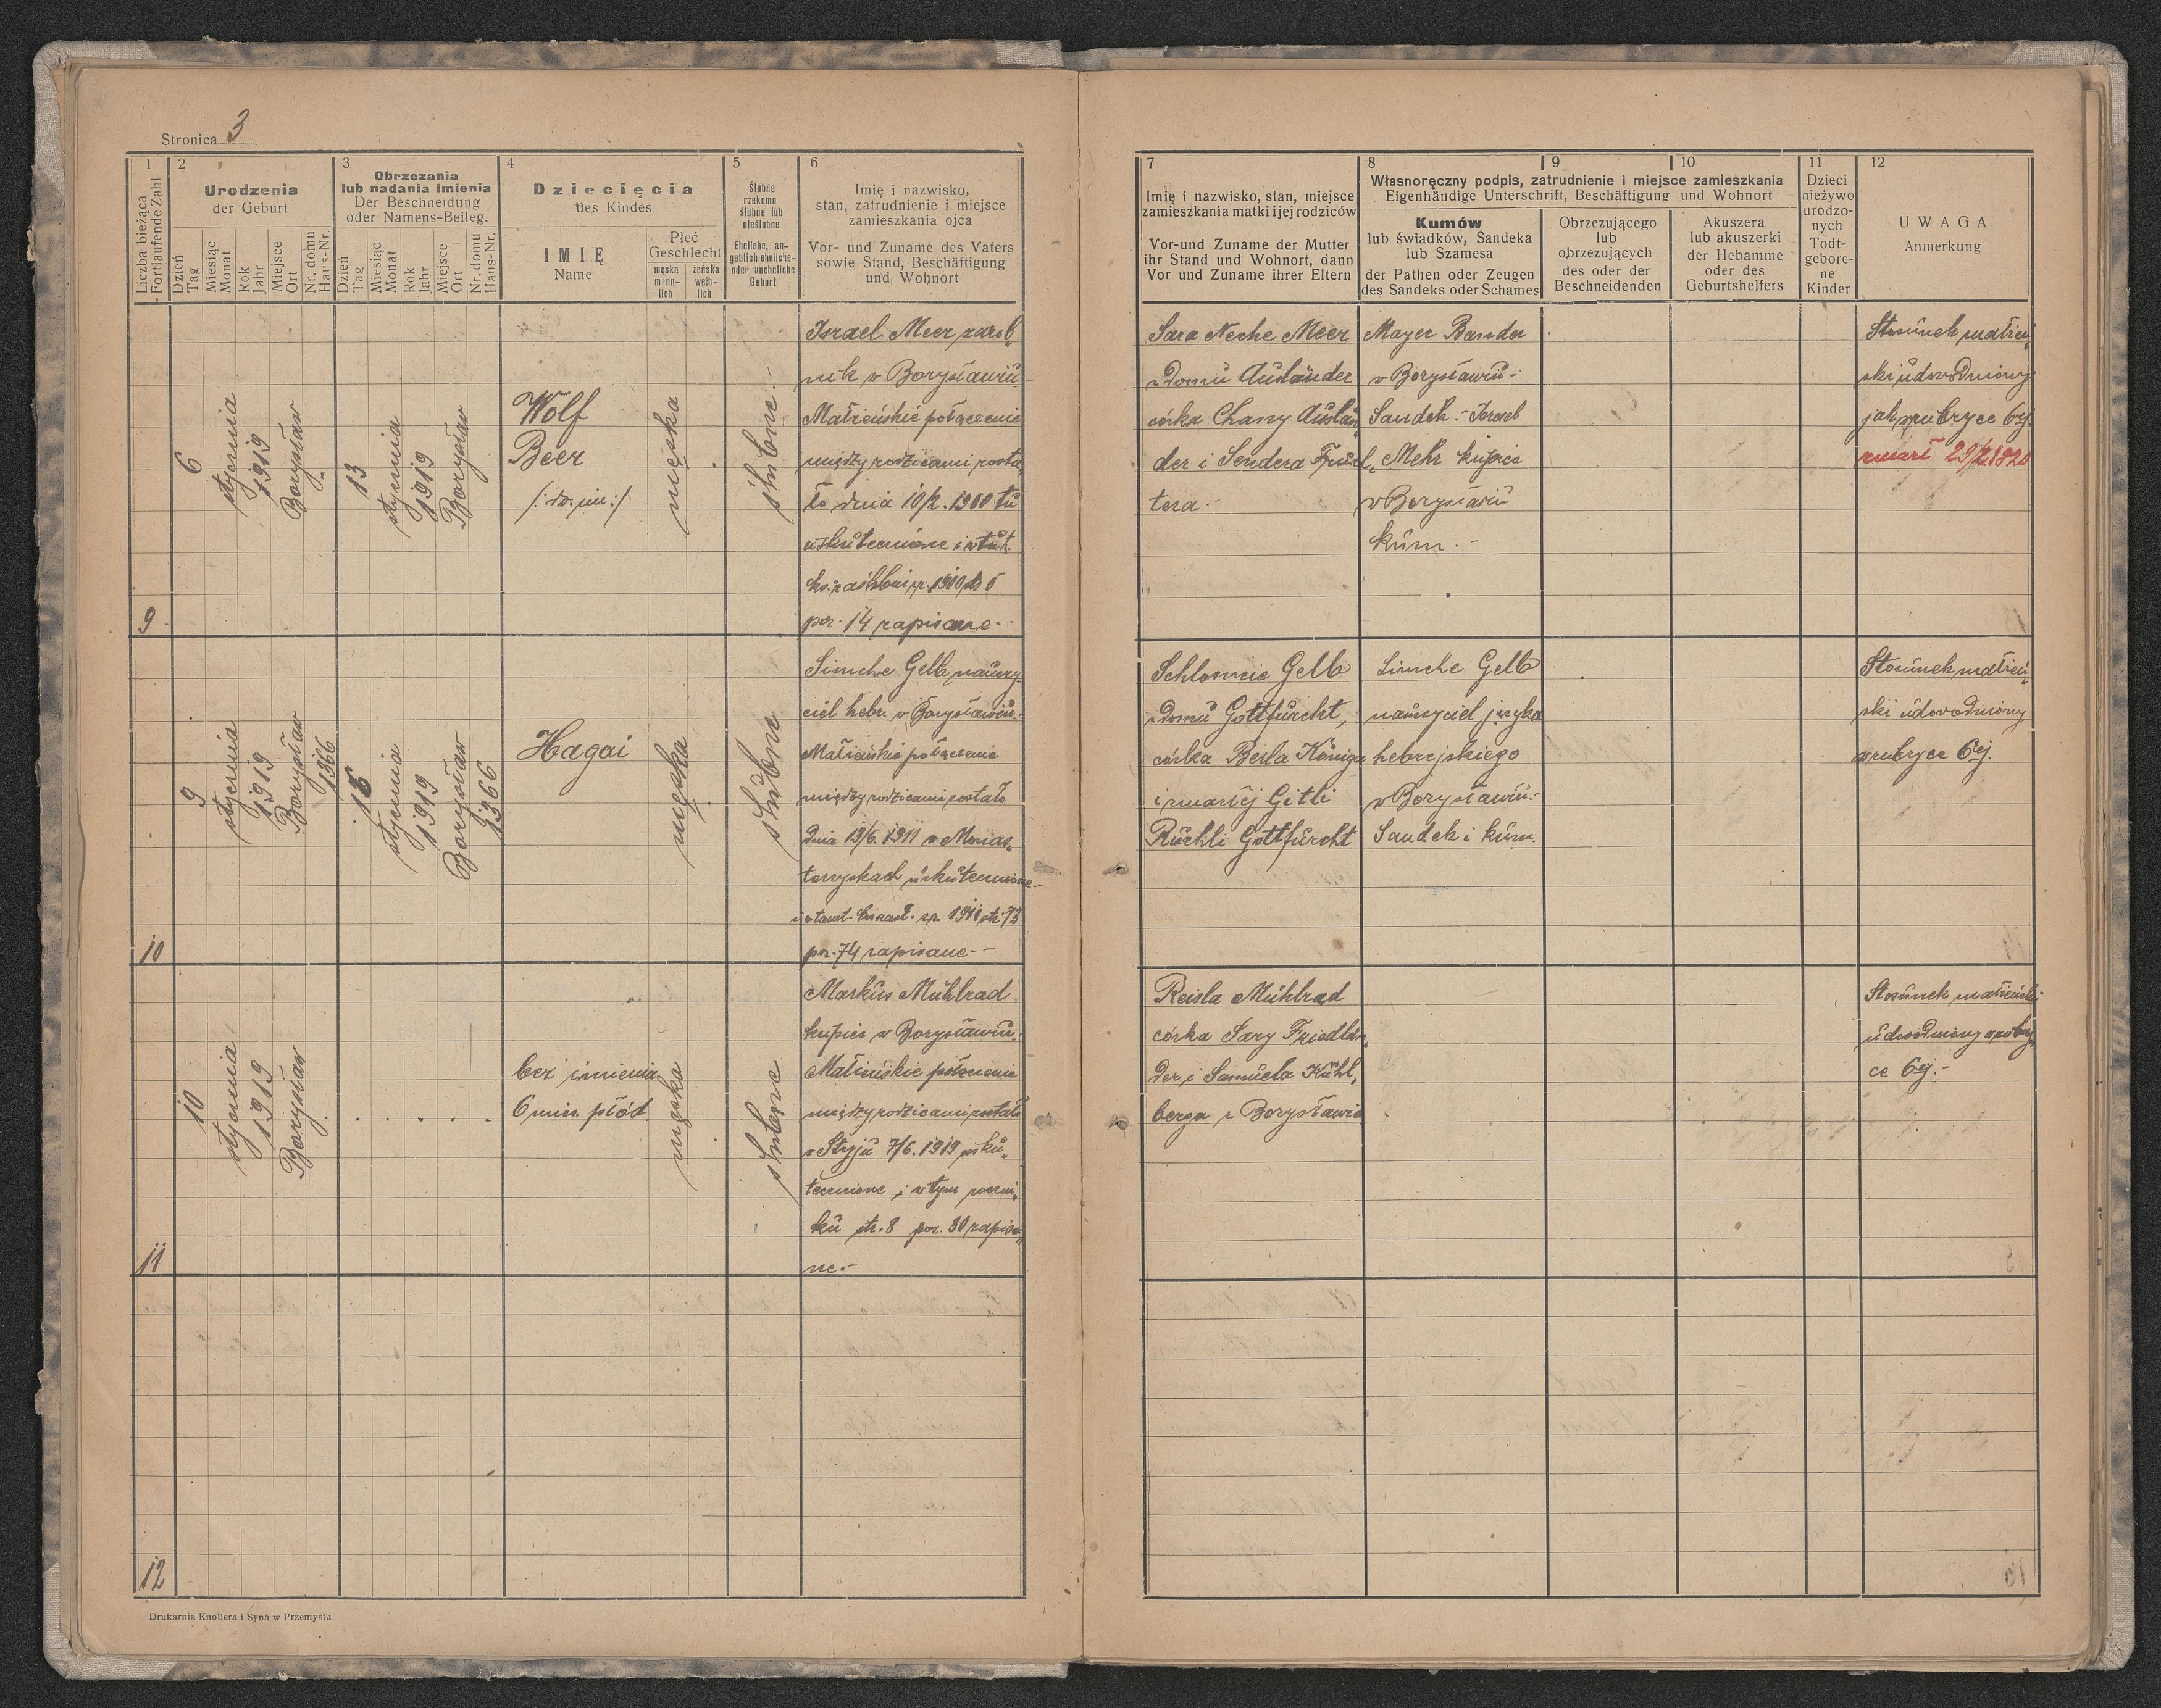 Stronica 3
1
Liczba bieżąca
Fortlaufende Zahl
2
Urodzenia
der Geburt
Dzień
Tag
Miesiąc
Monat
Rok
Jahr
Miejsce
Ort
Nr. domu
Haus-Nr.
3
Obrzezania
lub nadania imienia
Der Beschneidung
oder Namens-Beileg.
Dzień
Tag
Miesiąc
Monat
Rok
Jahr
Miejsce
Ort
Nr. domu
Haus-Nr.
4
Dziecięcia
des Kindes
IMIĘ
Name
Płeć
Geschlecht
męska
männ-
lich
żeńska
weib-
lich
5
Ślubne
rzekomo
ślubne lub
nieślubne
Eheliche, an-
geblich eheliche-
oder uneheliche
Geburt
6
Imię i nazwisko,
stan, zatrudnienie i miejsce
zamieszkania ojca
Vor- und Zuname des Vaters
sowie Stand, Beschäftigung
und Wohnort
7
Imię i nazwisko, stan, miejsce
zamieszkania matki i jej rodziców
Vor-und Zuname der Mutter
ihr Stand und Wohnort, dann
Vor und Zuname ihrer Eltern
8
9
10
Własnoręczny podpis, zatrudnienie i miejsce zamieszkania
Eigenhändige Unterschrift, Beschäftigung und Wohnort
Kumów
lub świadków, Sandeka
lub Szamesa
der Pathen oder Zeugen
des Sandeks oder Schames
Obrzezującego
lub
obrzezujących
des oder der
Beschneidenden
Akuszera
lub akuszerki
der Hebamme
oder des
Geburtshelfers
11
Dzieci
nieżywo
urodzo-
nych
Todt-
gebore-
ne
Kinder
12
UWAGA
Anmerkung
9
6
stycznia
1919
Borysław
13
stycznia
1919
Borysław
Wolf
Beer
/: dw. im :/
męska
ślubne.-
Israel Meer zarob„
nik w Borysławiu.-
Małżeńskie połączenie
między rodzicami zosta„
ło dnia 10/2. 1900 tu
uskutecznione i w tut.
poz. 14 zapisane.-
Sara Neche Meer
z domu Ausländer
córka Chany Auslän„
der i Sendera
tera
Mayer Bander
w Borysławiu.-
Sandek.- Israel
Mehr kupiec
w Borysławiu
kum.-
Stosunek małżeń„
ski udowodniony
jak w rubryce 6ej.
zmarł 29/2 1920
10
9
stycznia
1919
Borysław
1366
16
stycznia
1919
Borysław
1366
Hagai
męska
ślubne
Simche Gelb nauczy„
ciel hebr. w Borysławiu.-
Małżeńskie połączenie
między rodzicami zostało
dnia 13/6. 1911 w Monas„
terzyskach uskutecznione.-
poz. 74 zapisane.-
Schlomcie Gelb
z domu Gottfurcht,
córka Berla Königa
i zmarłej Gitli
Ruchli Gottfurcht
Simche Gelb
nauczyciel języka
hebrejskiego
w Borysławiu.-
Sandek i kum.
Stosunek małżeń„
ski udowodniony
w rubryce 6ej.
11
10
stycznia
1919
Borysław
bez imienia
6 mies. płód
męska
ślubne
Markus Mühlrad
kupiec w Borysławiu.
Małżeńskie połączenie
między rodzicami zostało
w Stryju 7/6. 1919 usku„
tecznione i w tym roczni„
ku str. 8 poz. 30 zapisa„
ne.-
Reisla Mühlrad
córka Sary Friedlän„
der i Samuela Kühl„
berga z Borysławia
Stosunek małżeński
udowodniony w rubry„
ce 6ej.-
12
Drukarnia Knollera i Syna w Przemyślu